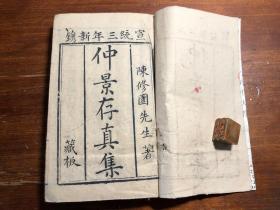 宣統三年新鐫
陳修園先生著
仲景存真集
藏板